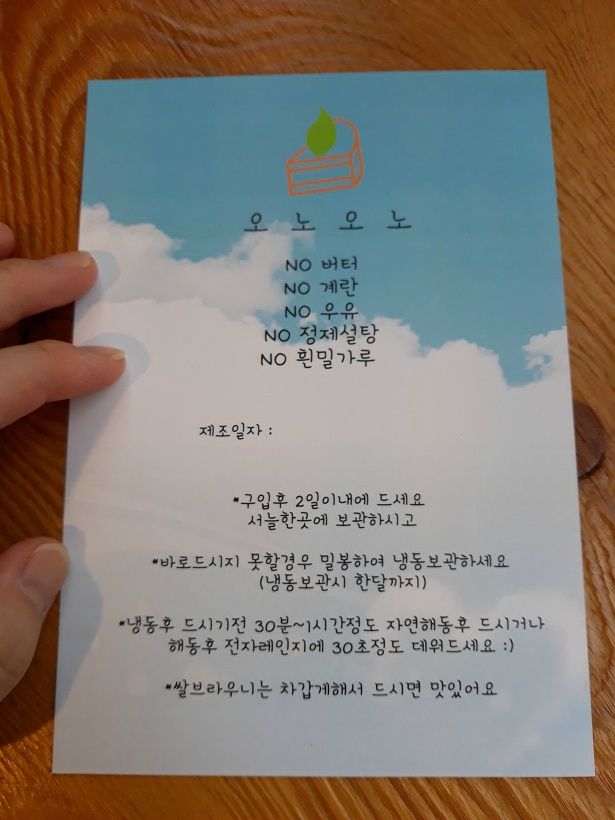 오 노 오 노
NO 버터
NO 계란
NO 우유
NO 정제설탕
NO 흰밀가루
제조일자 :
*구입후 2일이내에 드세요
서늘한곳에 보관하시고
*바로드시지 못할경우 밀봉하여 냉동보관하세요
(냉동보관시 한달까지)
*냉동후 드시기전 30분~1시간정도 자연해동후 드시거나
해동후 전자레인지에 30초정도 데워드세요 :)
*쌀브라우니는 차갑게해서 드시면 맛있어요